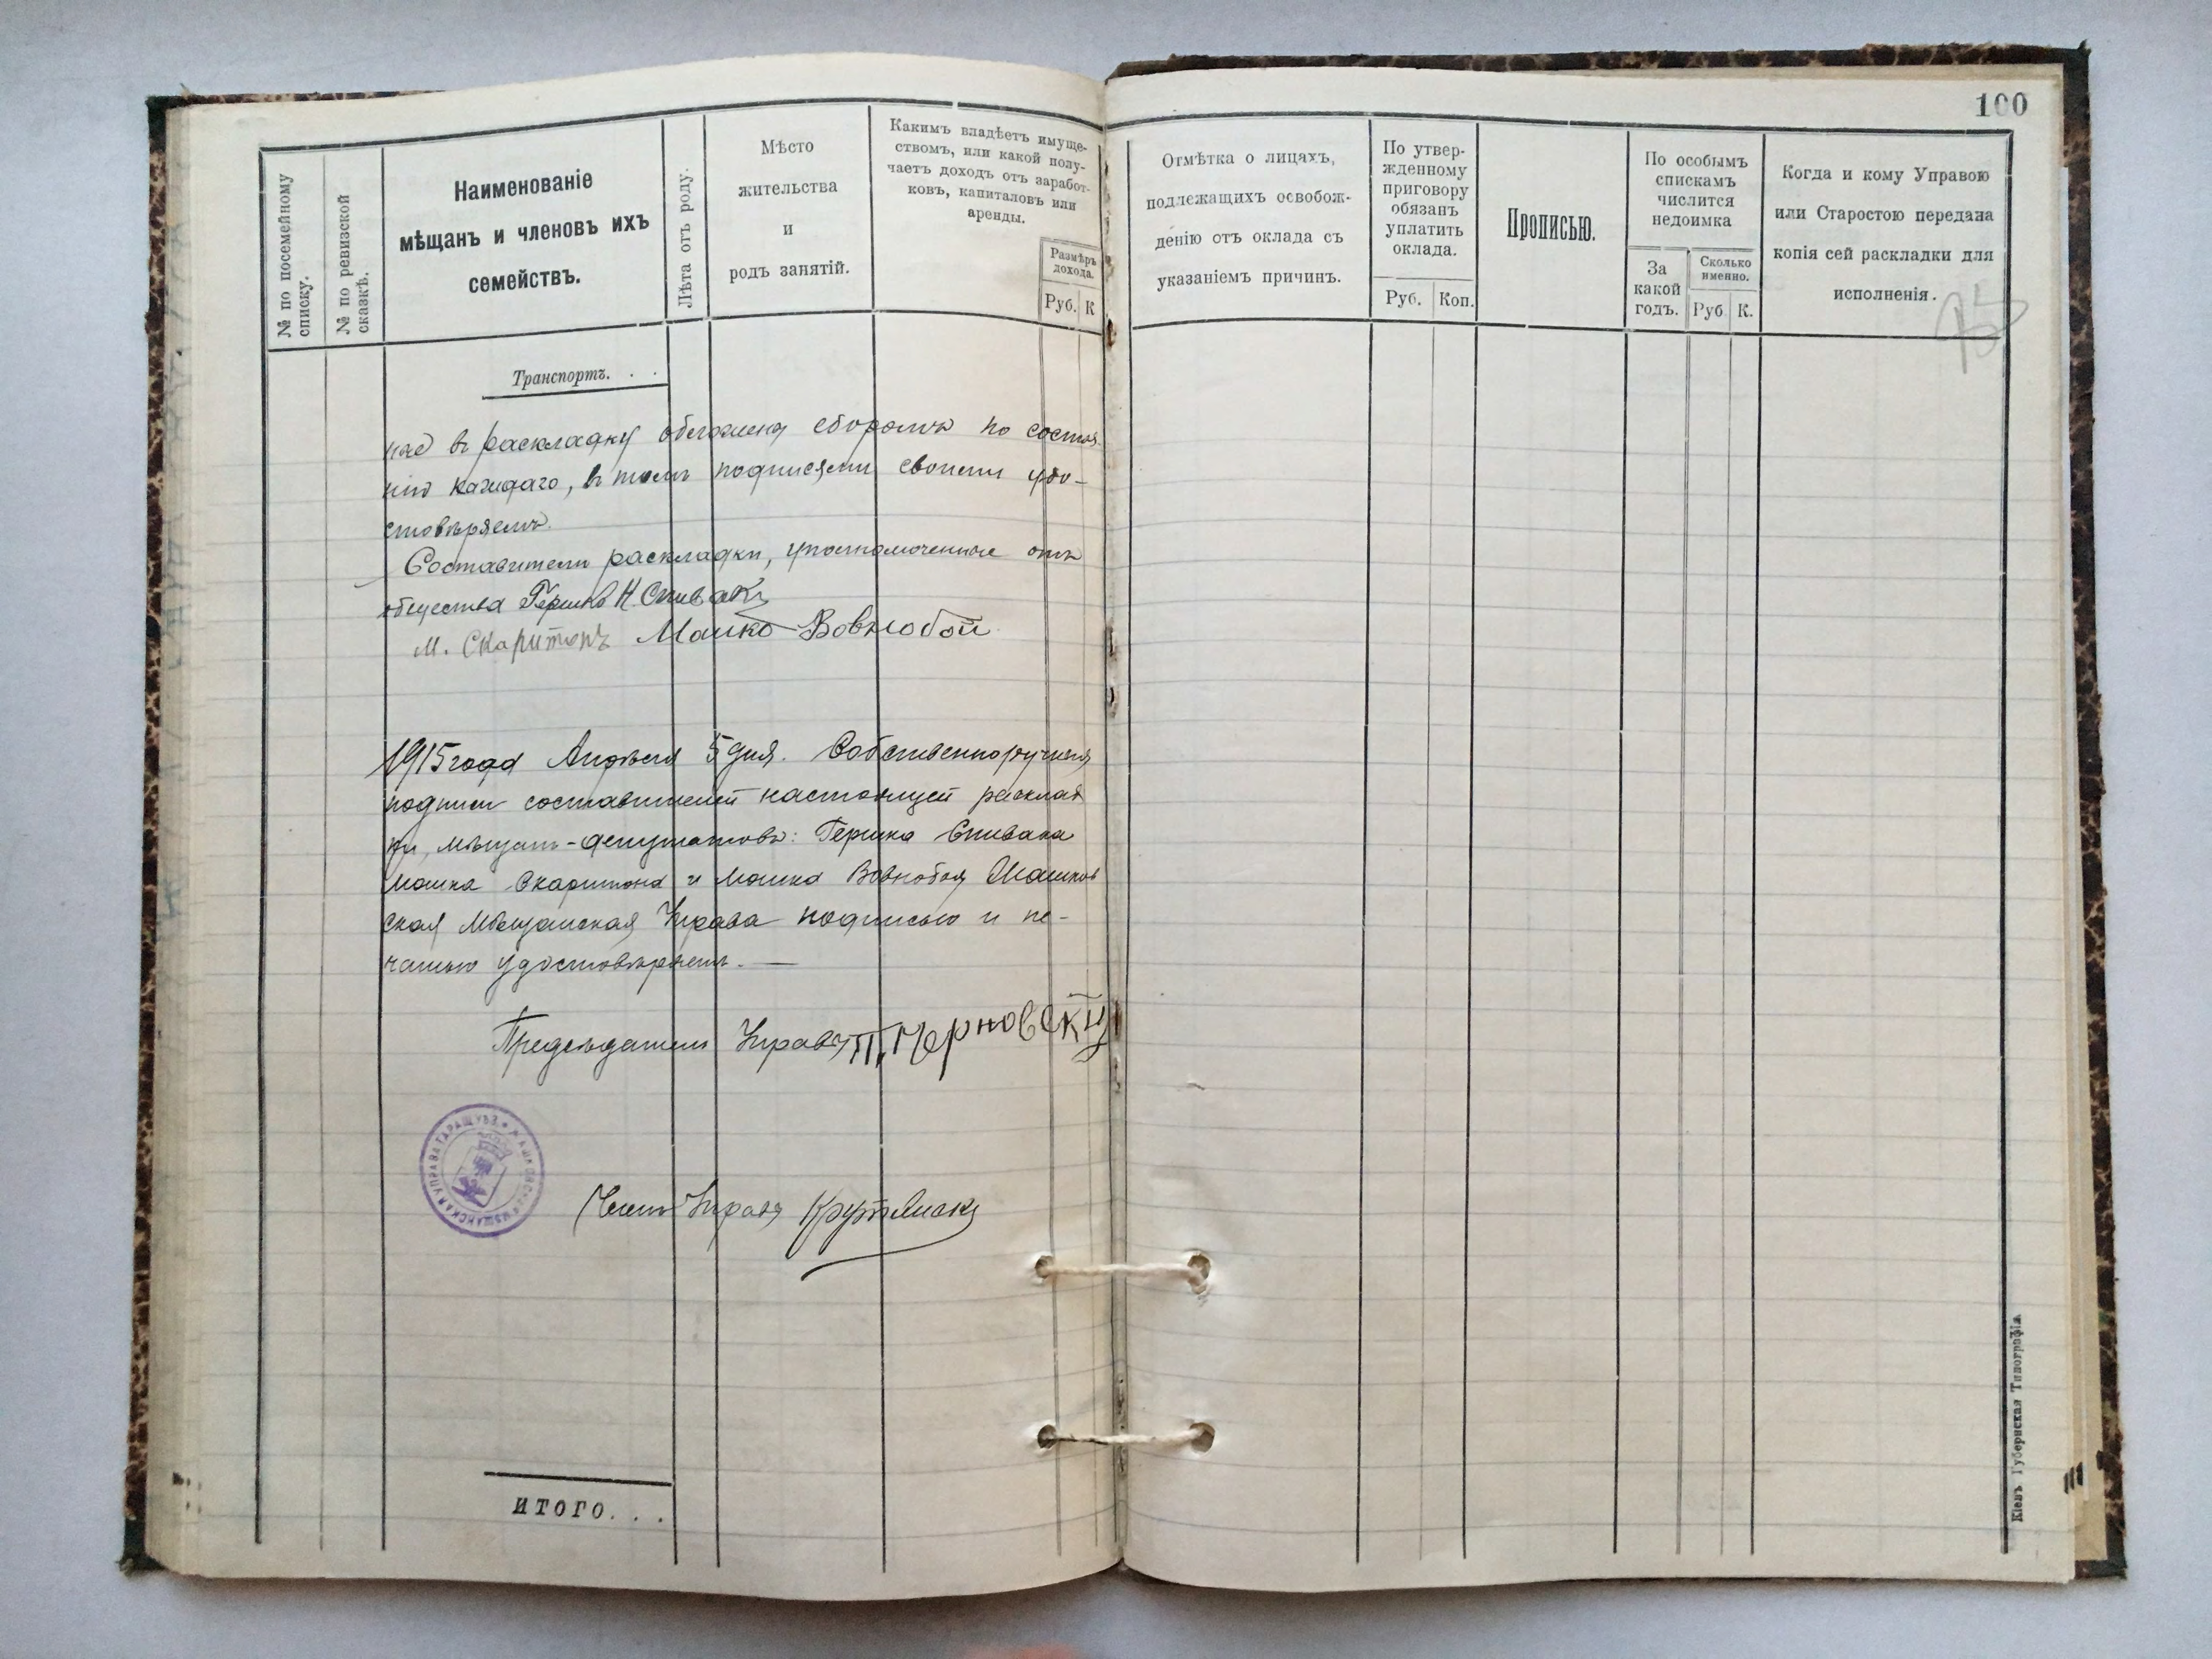 № по посемейному
списку.
№ по ревизской
сказкѣ.
Наименованіе
мѣщанъ и членовъ ихъ
семействъ.
Лѣта отъ роду.
Мѣсто
жительства
и
родъ занятій.
Какимъ владѣетъ имуще-
ствомъ, или какой полу-
чаетъ доходъ отъ заработ-
ковъ, капиталовъ или
аренды.
Размѣръ
дохода.
Руб. К
Транспортъ. . .
в раскладку обложены сборомъ по состоя-
нію каждаго, в томъ подписями своими удо-
стовѣряемъ.
Составители раскладки, уполномоченные отъ
общества Гершко Н. Спивакъ
М. Скаритонъ Мошко Вовнобой
1915 года Апрѣля 5 дня. Собственноручныя
подписи составителей настоящей расклад
ки, мѣщанъ-депутатовъ: Гершка Спивака
Мошка Скаритона и Мошка Вовнобоя Жашков
ская Мѣщанская Управа подписью и пе-
чатью удостовѣряетъ. —
Предсѣдатель Управы П. Черновскій
МѢЩАНСКАЯ УПРАВА ТАРАЩ. УѢЗ. * ЖАШКОВСКАЯ
Членъ Управы
ИТОГО. . .
100
Отмѣтка о лицахъ,
подлежащихъ освобож-
денію отъ оклада съ
указаніемъ причинъ.
По утвер-
жденному
приговору
обязанъ
уплатить
оклада.
Руб. Коп.
Прописью.
По особымъ
спискамъ
числится
недоимка
За
какой
годъ.
Сколько
именно.
Руб К.
Когда и кому Управою
или Старостою передана
копія сей раскладки для
исполненія.
Кіевъ Губернская Типографія.